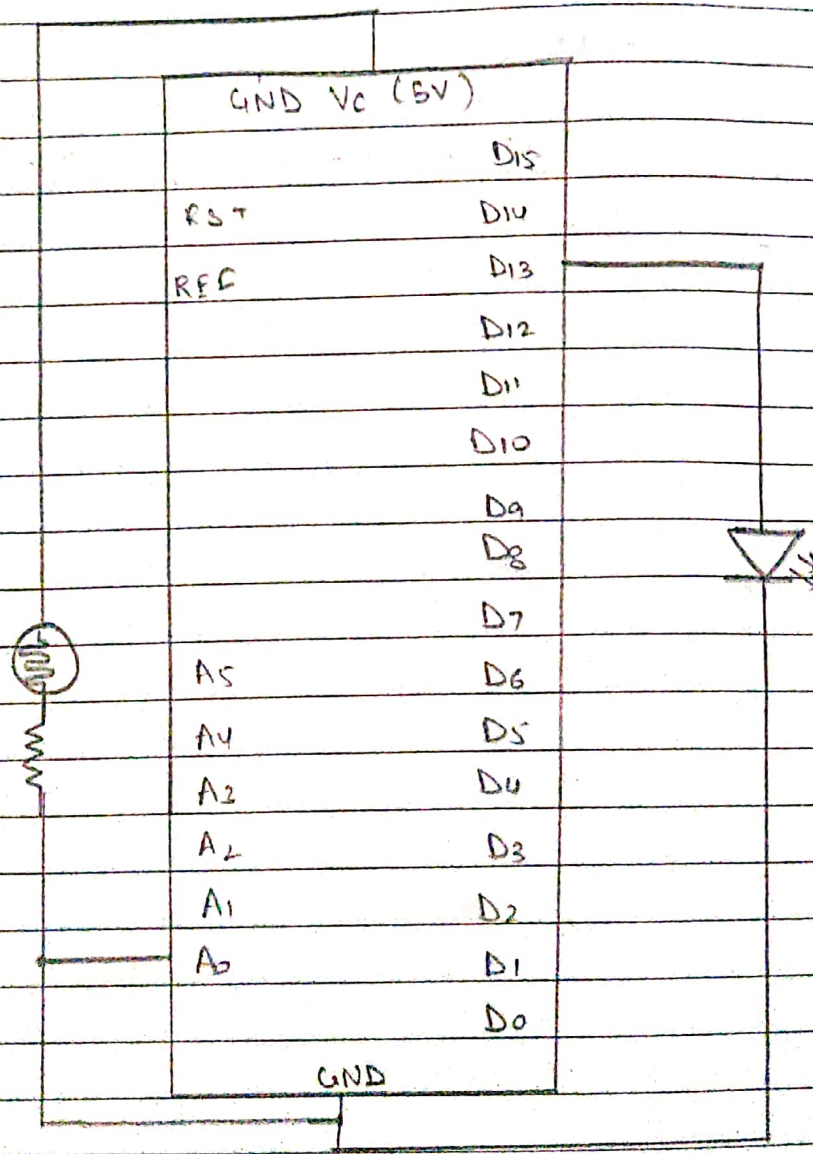 GND Vc (5V)
D15
RST D14
REF D13
D12
D11
D10
D9
D8
D7
A5 D6
A4 D5
A3 D4
A2 D3
A1 D2
A0 D1
D0
GND